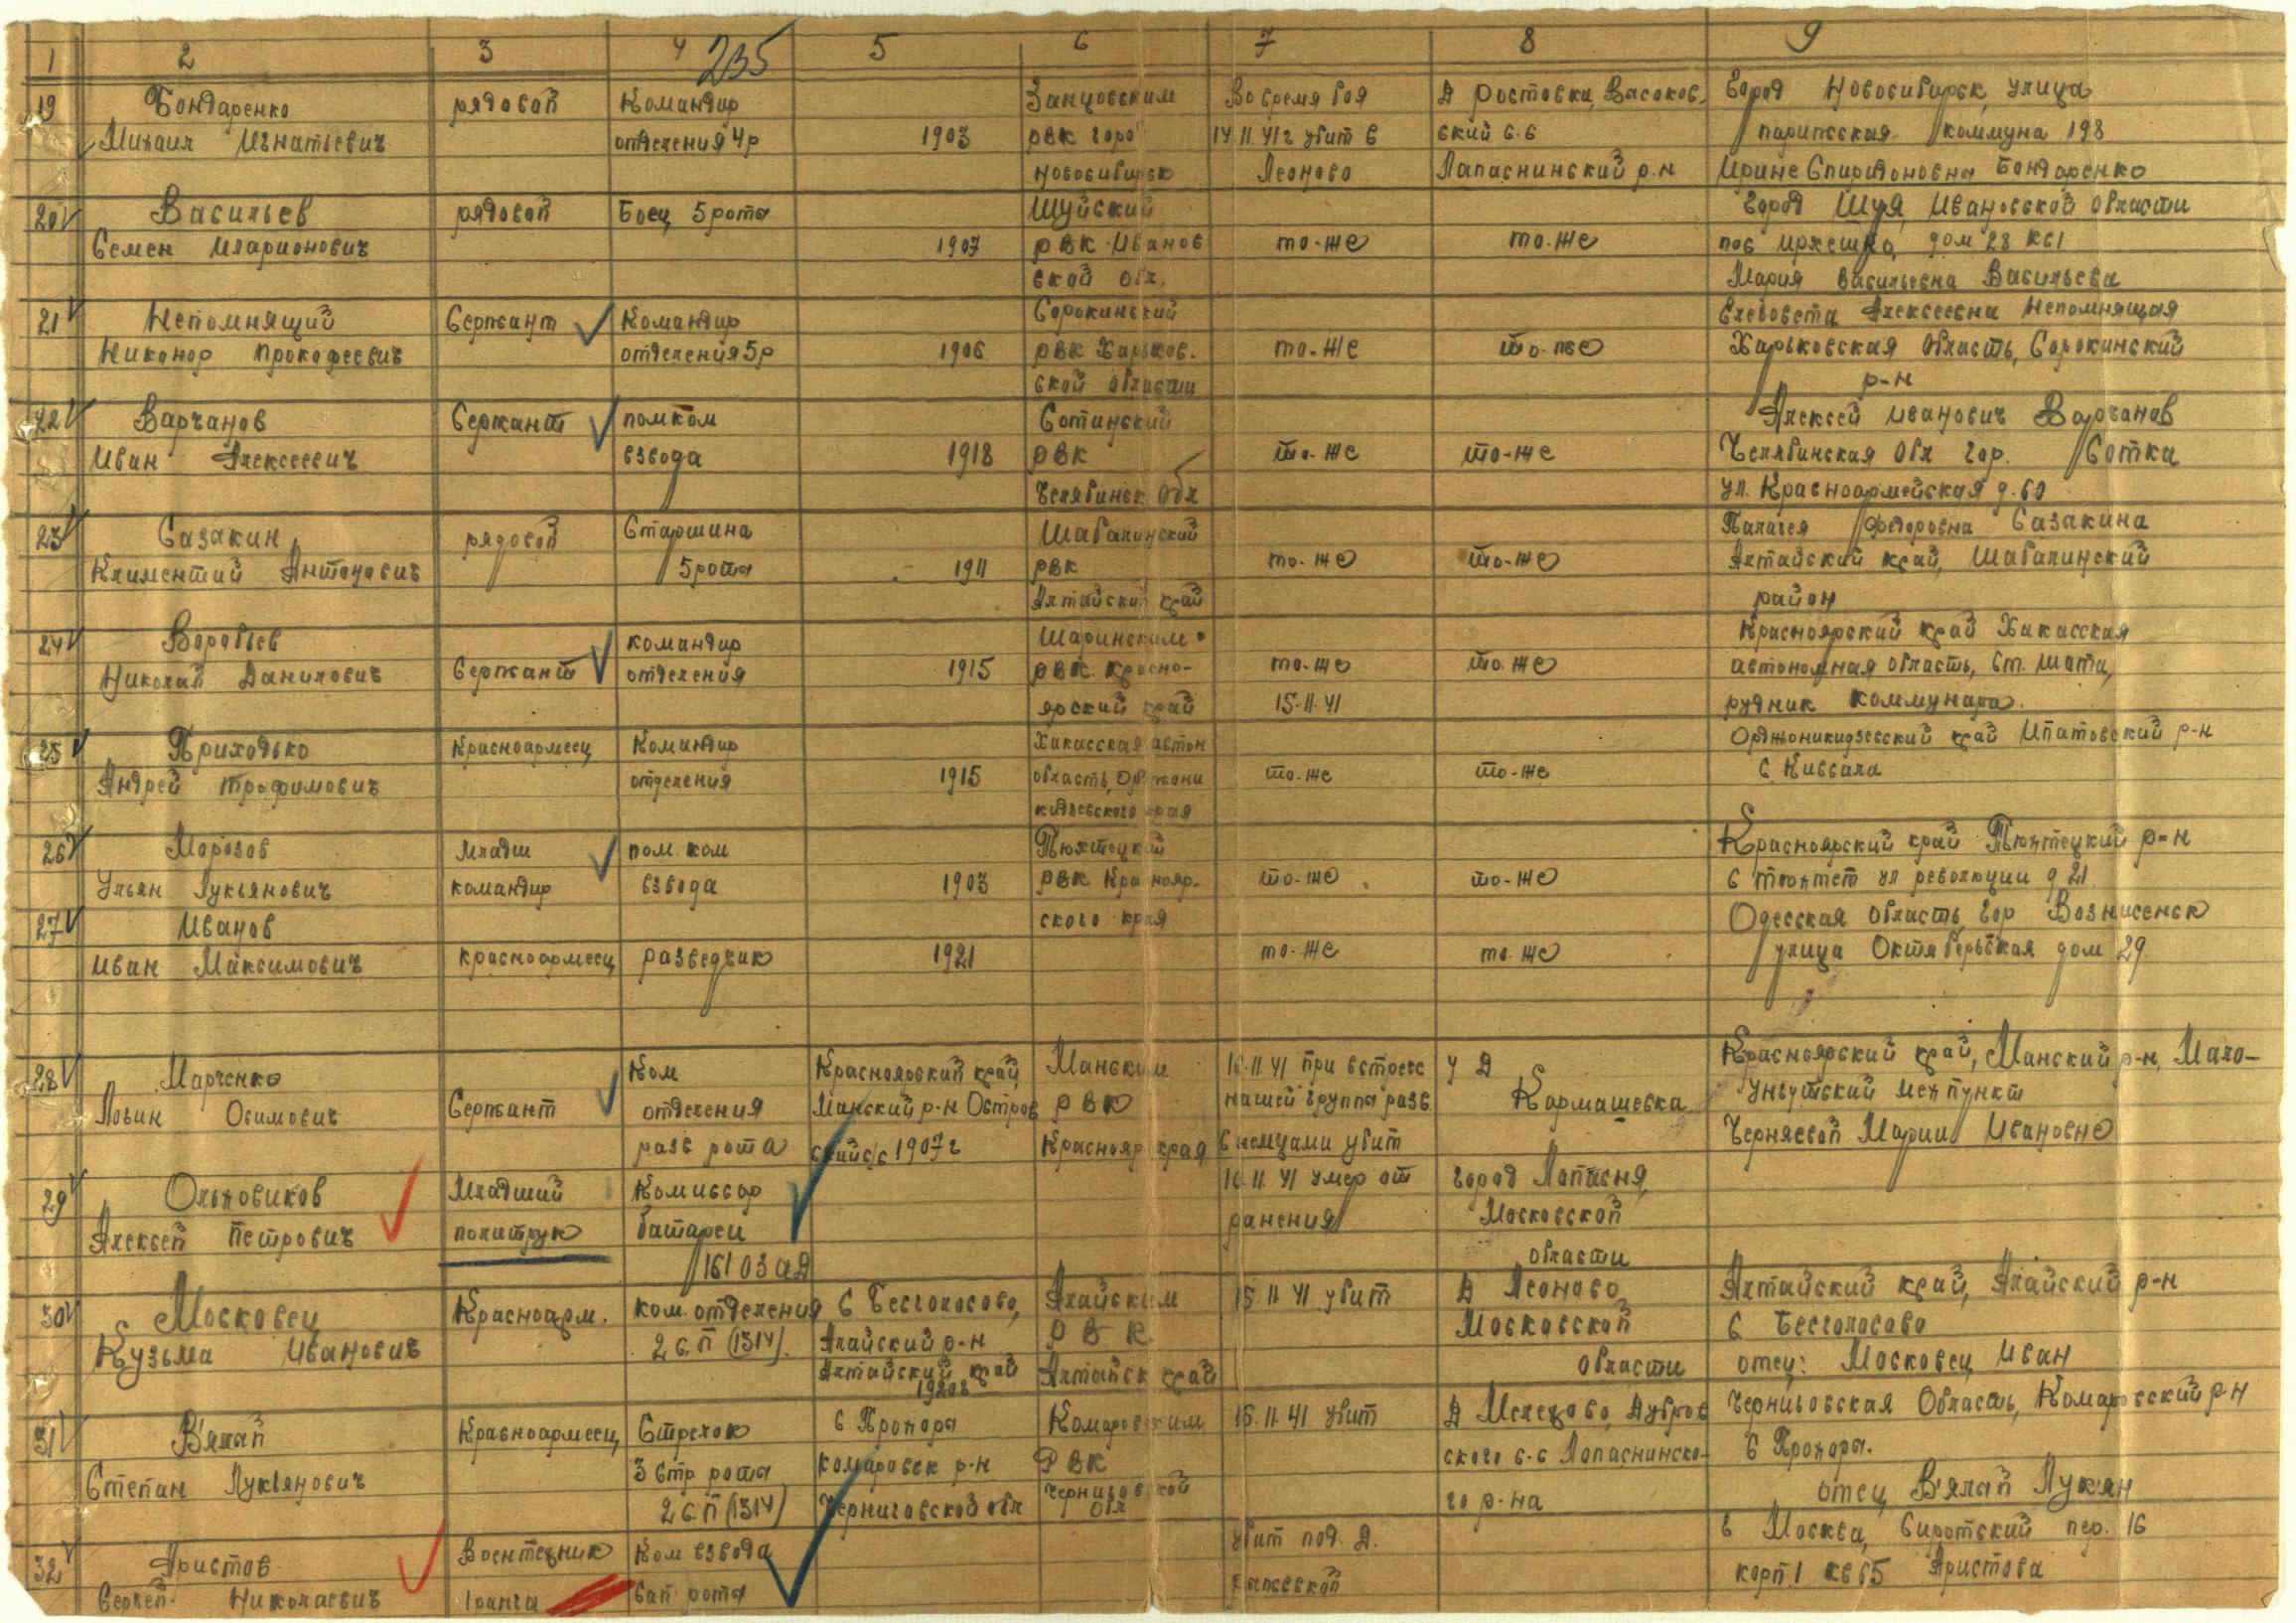 1 2 3 4 5 6 7 8 9
235
19 Бондаренко рядовой Командир Занцовским Во время боя д Ростовка, Васоков. Город Новосибирск, улица
Михаил Игнатьевич отделения 4р 1903 РВК горо 14.11.41г убит в ский с.с парижская коммуна 198
Новосибирск Леоново Лапаснинский р-н Ирине Спиридоновна Бондаренко
20 Васильев рядовой Боец 5 рота Шуйский Город Шуя, Ивановской области
Семен Иларионович 1907 РВК Иванов то-же то-же дом 28 кв 1
ской обл. Мария Васильевна Васильева
21 Непомнящий Сержант Командир Сорокинский Елезовета Алексеевна Непомнящая
Никонор Прокофеевич отделения 5р 1906 РВК Харьков. то-же то-же Харьковская область, Сорокинский
ской области р-н
22 Варчанов Сержант помком Сотинский Алексей Иванович Варчанов
Иван Алексеевич взвода 1918 РВК то-же то-же Челябинская обл гор. Сотка
Челябинск обл ул. Красноармейская д. 60
23 Сазакин рядовой Старшина Шабалинский Палагея Федоровна Сазакина
Климентий Антонович 5 рота 1911 РВК то-же то-же Алтайский край, Шабалинский
Алтайский край район
24 Воробьев командир Шаринским Красноярский край Хакасская
Николай Данилович Сержант отделения 1915 РВК. Красно- то-же то-же автономная область, ст. Шата,
ярский край 15.11.41 рудник Коммунара.
25 Приходько Красноармеец Командир Хакасская автон Орджоникидзевский край Ипатовский р-н
Андрей Трофимович отделения 1915 область, Орджони то-же то-же с Кивсала
кидзевского края
26 Морозов Младш пом. ком Тюхтецкий Красноярский край Тюхтецкий р-н
Ульян Лукьянович командир взвода 1903 РВК Краснояр- то-же то-же с тюхтет ул революции д 21
27 Иванов ского края Одесская область, гор Вознисенск
Иван Максимович красноармеец разведчик 1921 то-же то-же улица Октяберьская дом 29
28 Марченко Ком Красноярский край, Манским 16.11.41 при встрече у д Красноярский край, Манский р-н, Мало-
Ловин Осимович Сержант отделения Манский р-н Остров РВК нашей группа разв. Кармашевка Унгутский мехпункт
разв рота ский с/с 1907г Краснояр края с немцами убит Черняевой Марии Ивановне
29 Ольховиков Младший Комиссар 16.11.41 умер от город Лопасня,
Алексей Петрович политрук батареи ранения Московской
161 ОЗАД области
30 Московец Красноарм. ком. отделения с Бесголосово, Алайским 15.11.41 убит д Леоново Алтайский край, Алайский р-н
Кузьма Иванович 2 СП (1314). Алайский р-н РВК Московской с Бесголосово
Алтайский край Алтайск край области отец: Московец Иван
1920г
31 Вялай Красноармеец Стрелок с Прохора Комаровским 15.11.41 убит д Мелехово, Дубров Черниговская Область, Комаровский р-н
Степан Лукьянович 3 стр рота комаровск р-н РВК ского с-с Лопаснинско- с Прохора.
2 СП (1314) Черниговской обл Черниговской обл го р-на отец Вялай Лукян
32 Аристов Воентехник Ком взвода убит под д. г Москва, Сиротский пер. 16
Сергей Николаевич 1 ранга сап рота корп 1 кв 65 Аристова